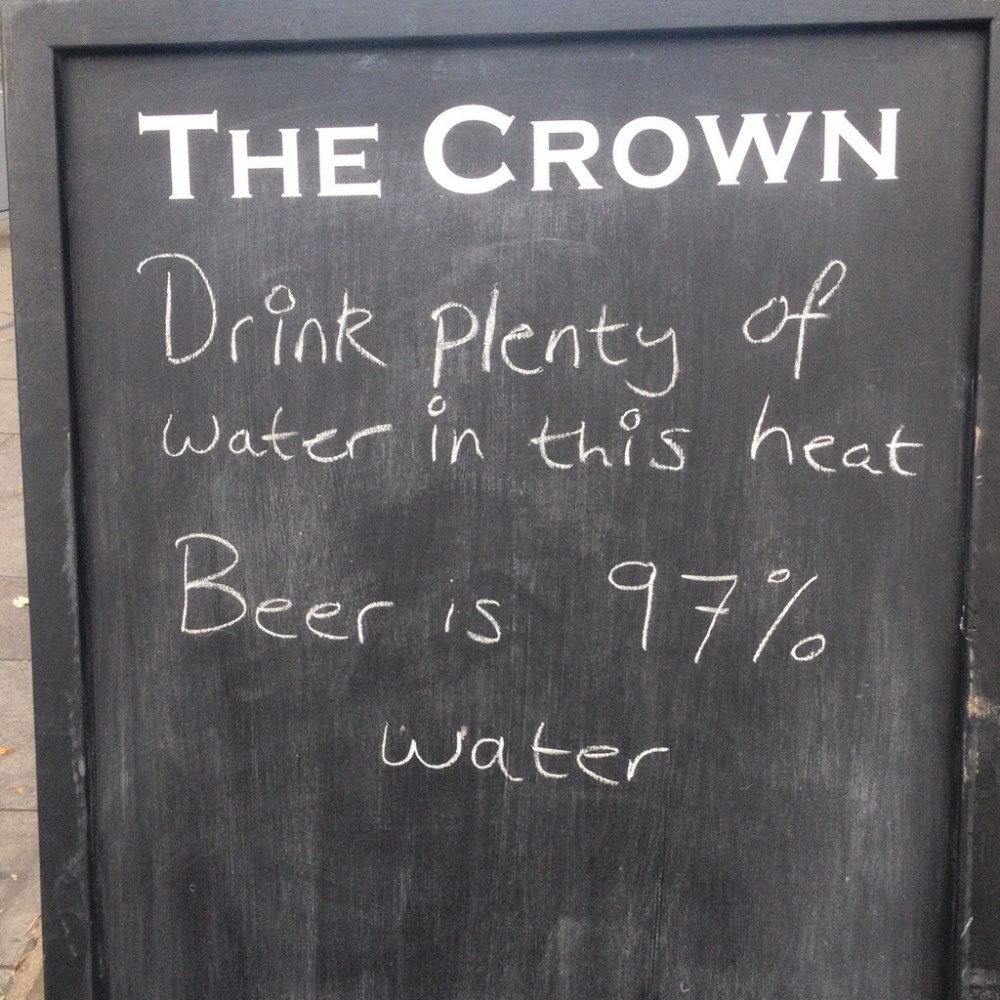 THE CROWN
Drink plenty of
water in this heat
Beer is 97%
water